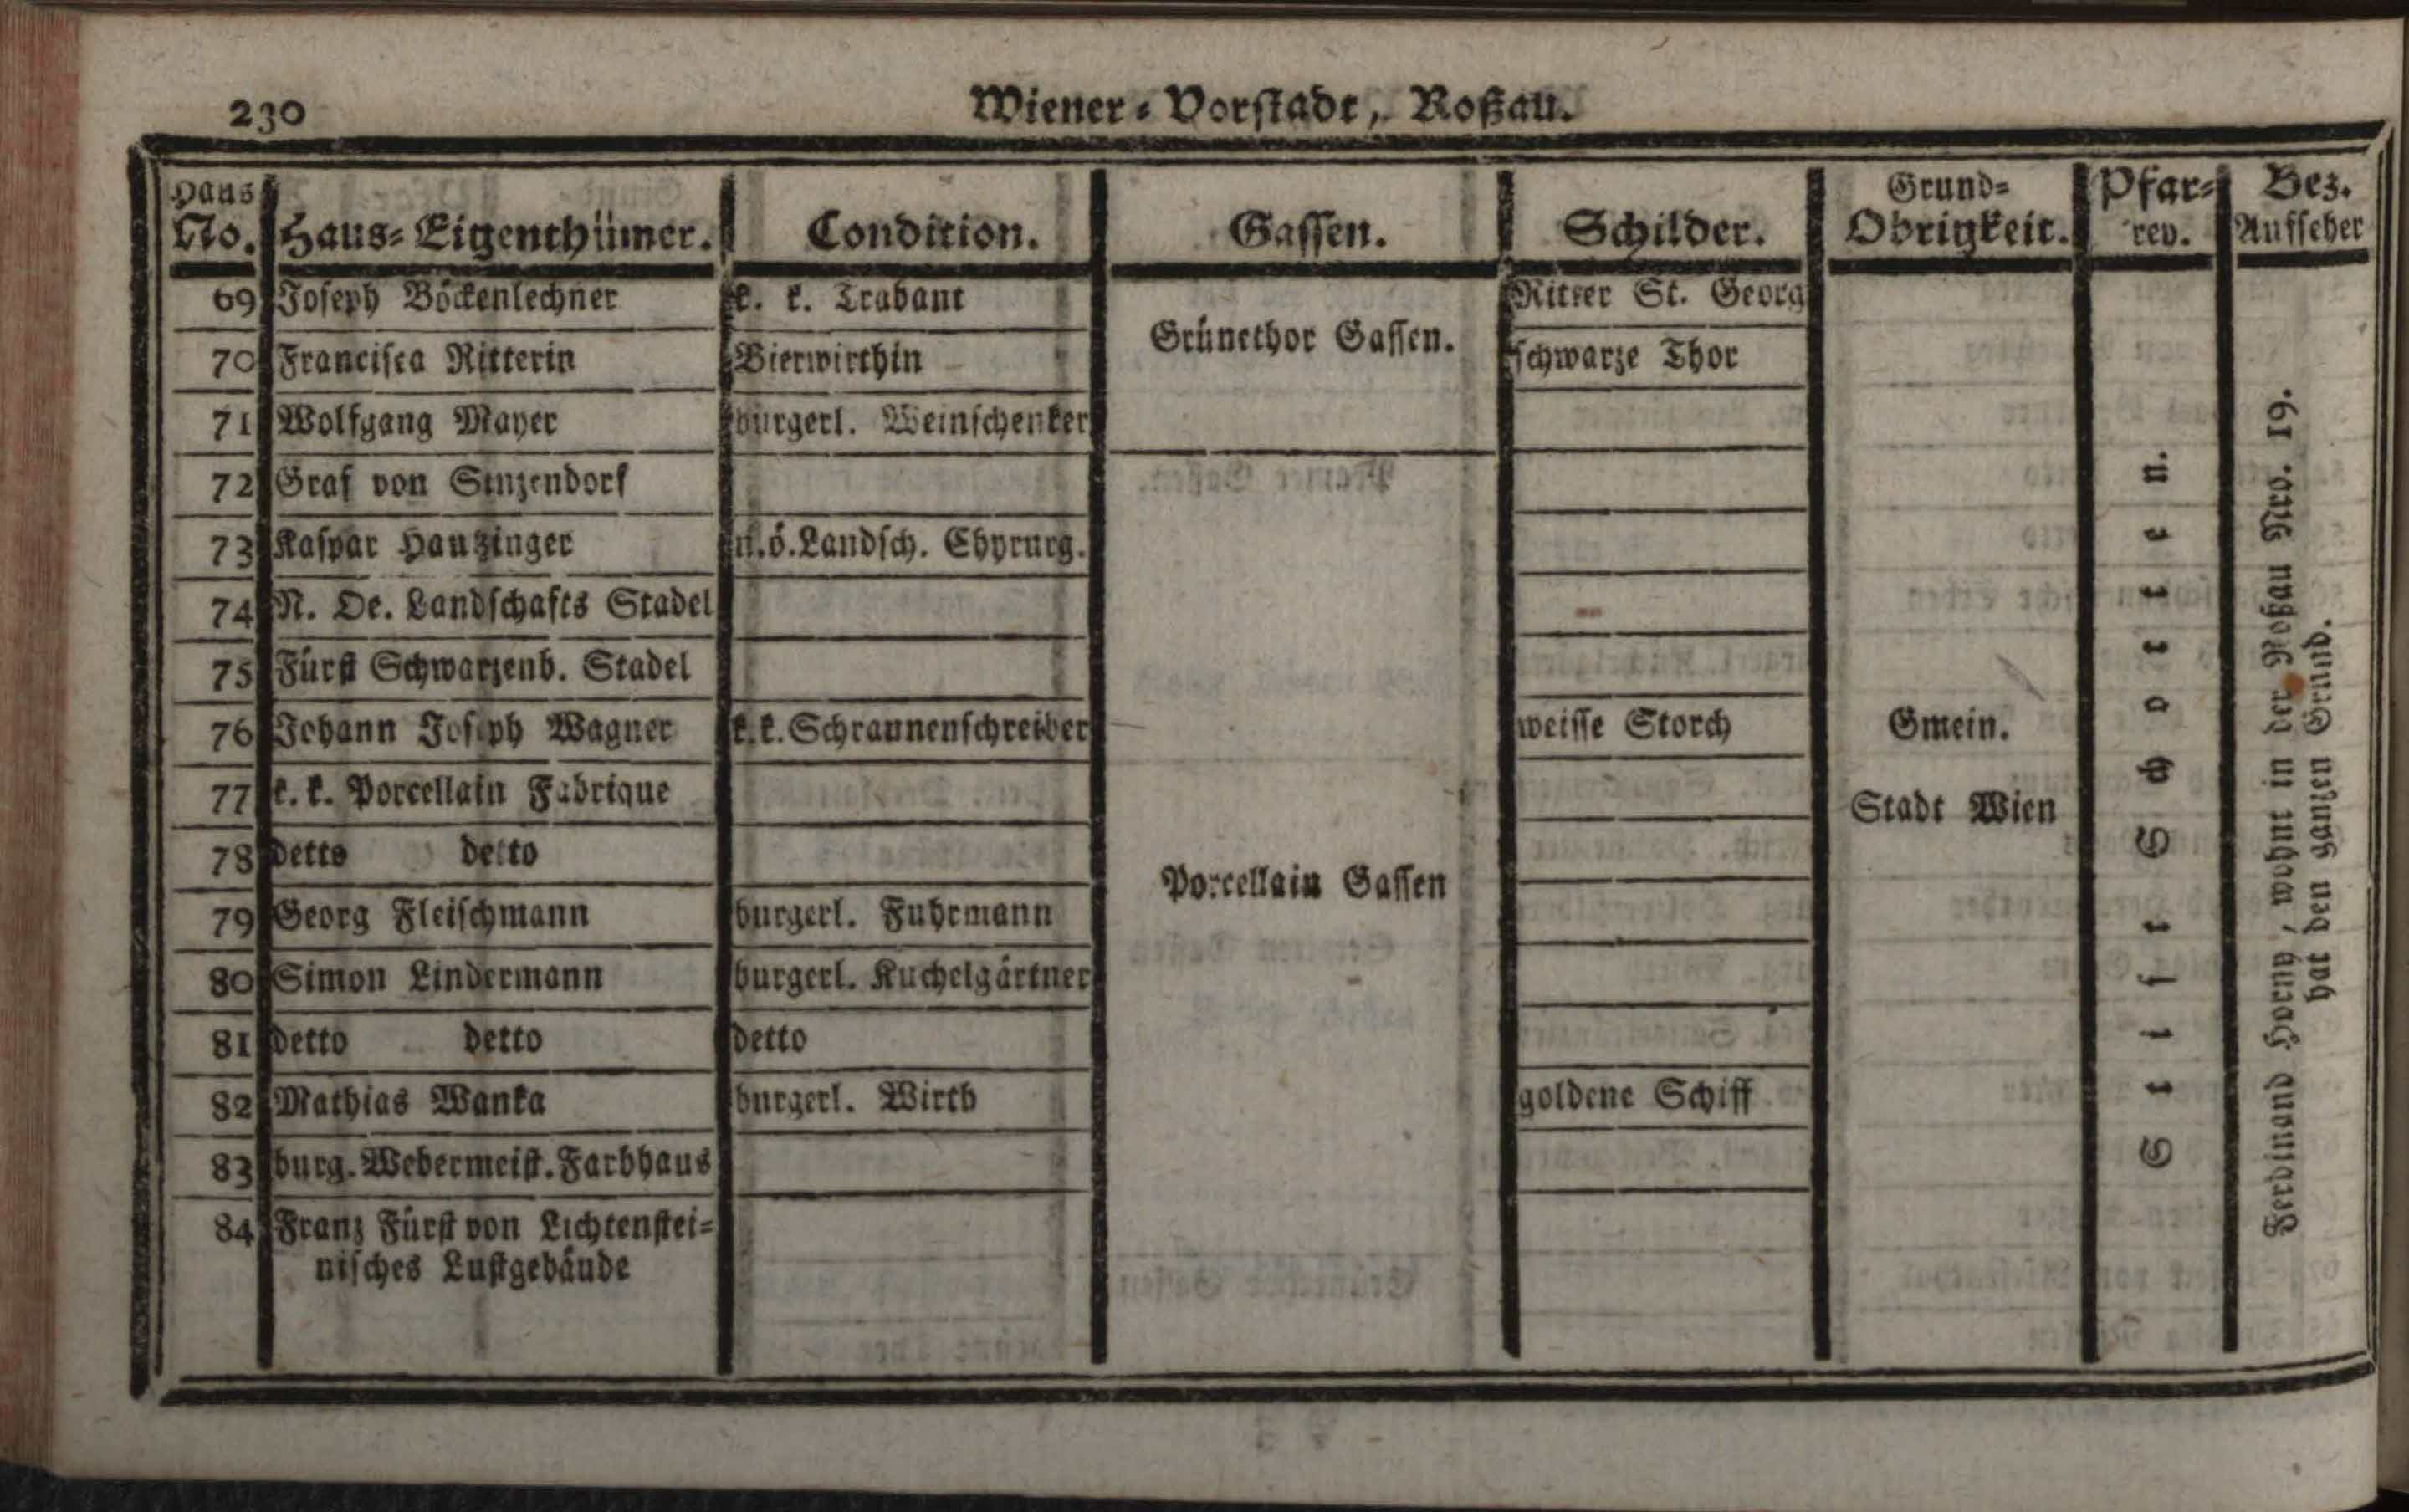 230
Wiener-Vorstadt, Roßau.
Haus No. Haus-Eigenthümer. Condition. Gassen. Schilder. Grund-Obrigkeit. Pfar-rey. Bez. Aufseher
69 Joseph Böckenlechner k. k. Trabant Ritter St. Georg
Grünethor Gassen.
70 Francisca Ritterin Bierwirthin schwarze Thor
71 Wolfgang Mayer burgerl. Weinschenker
72 Graf von Sinzendorf
73 Kaspar Hautzinger n.ö.Landsch. Chyrurg.
74 N. Oe. Landschafts Stadel
75 Fürst Schwarzenb. Stadel
76 Johann Joseph Wagner k.k.Schrannenschreiber weisse Storch Gmein.
77 k. k. Porcellain Fabrique Stadt Wien
78 detto detto
Porcellain Gassen
79 Georg Fleischmann burgerl. Fuhrmann
80 Simon Lindermann burgerl. Kuchelgärtner
81 detto detto detto
82 Mathias Wanka burgerl. Wirth goldene Schiff
83 burg. Webermeist. Farbhaus
84 Franz Fürst von Lichtenstei-
nisches Lustgebäude
Stift Schotten.
Ferdinand Horny, wohnt in der Roßau Nro. 19.
hat den ganzen Grund.